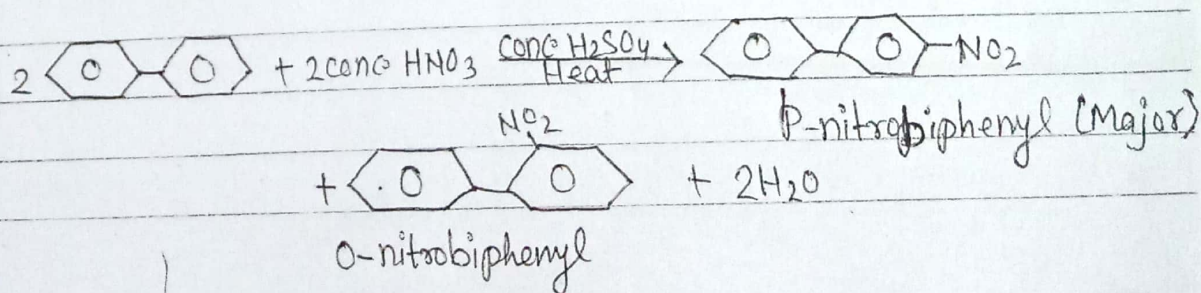 2 + 2conc HNO3 conc H2SO4 Heat NO2
p-nitrobiphenyl (Major)
NO2
+ + 2H2O
o-nitrobiphenyl